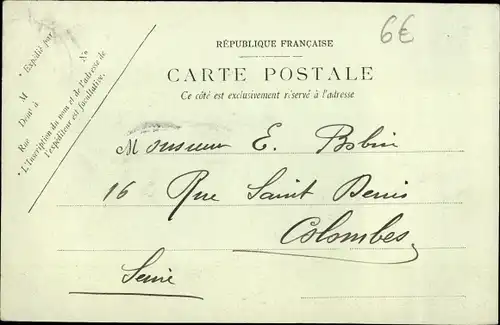 6€
RÉPUBLIQUE FRANÇAISE
CARTE POSTALE
Ce côté est exclusivement réservé à l'adresse
* Expédié par
M
Demt à
Rue Nº
* L'Inscription du nom et de l'adresse de
l'expéditeur est facultative.
Monsieur E. Bobin
16 Rue Saint Denis
Colombes
Seine